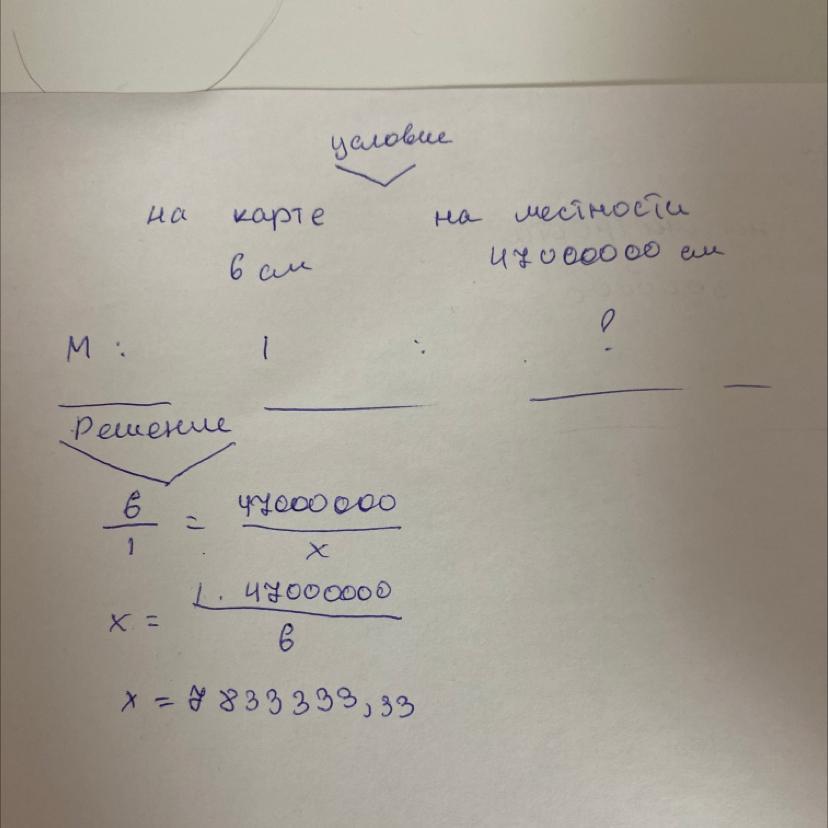 условие
на карте на местности
6 см 47000000 см
М : 1 : ?
Решение
6/1 = 47000000/x
x = 1 · 47000000/6
x = 7 833333,33